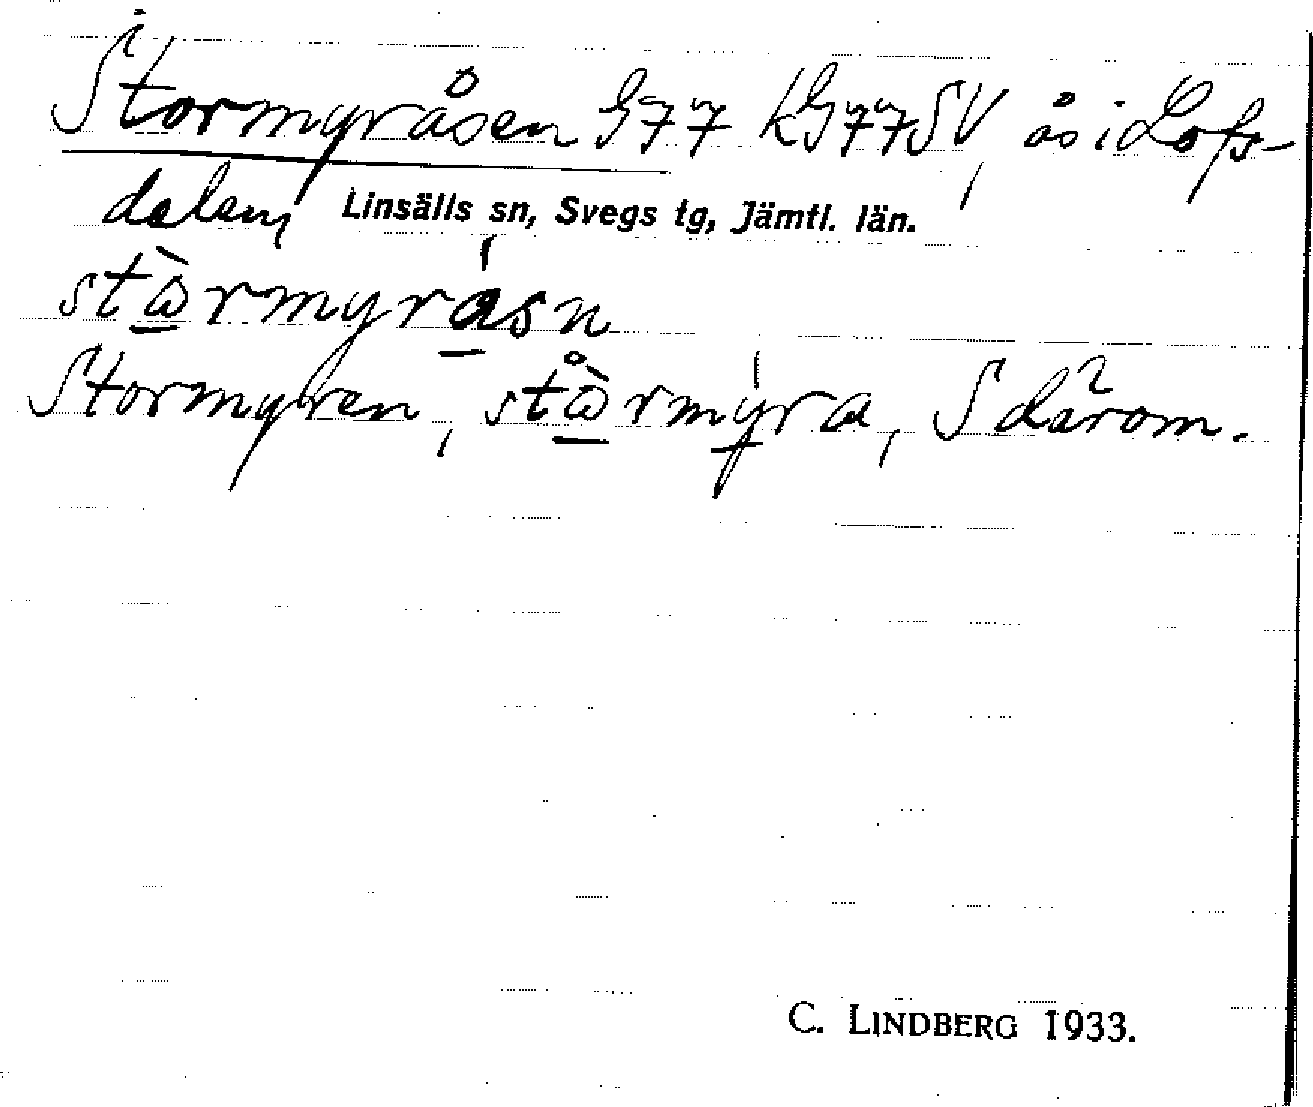 Stormyråsen G77 KG77SV, ås i Lofs-
dalen, Linsälls sn, Svegs tg, Jämtl. län.
stɷ̀rmyrásn
Stormyren, stɷ̊̀rmýra, S därom.
C. LINDBERG 1933.